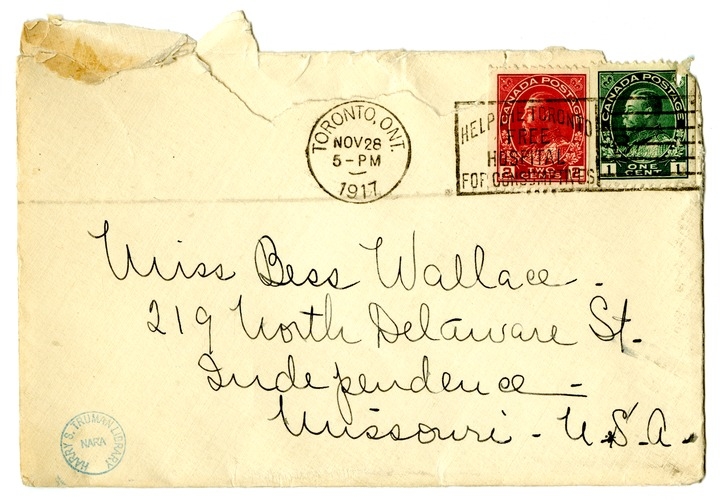 TORONTO, ONT.
NOV 28
5-PM
1917
HELP THE TORONTO
FREE
HOSPITAL
FOR CONSUMPTIVES
CANADA POSTAGE
2 CENTS 2
CANADA POSTAGE
1 ONE CENT 1
Miss Bess Wallace -
219 North Delaware St.
Independence -
Missouri - U.S.A.
HARRY S. TRUMAN LIBRARY
NARA